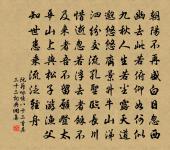 朝陽不再盛白日忽西
幽去此若俯仰如何似
九秋人生若塵露天道
邈悠悠齊景升丘山涕
泗紛交流孔聖臨長川
惜逝忽若浮去者余不
及來者吾不留願登太
華山上與松子游漁父
知世患乘流泛輕舟
阮籍詠懷八十二首其
三十二詞典圖集